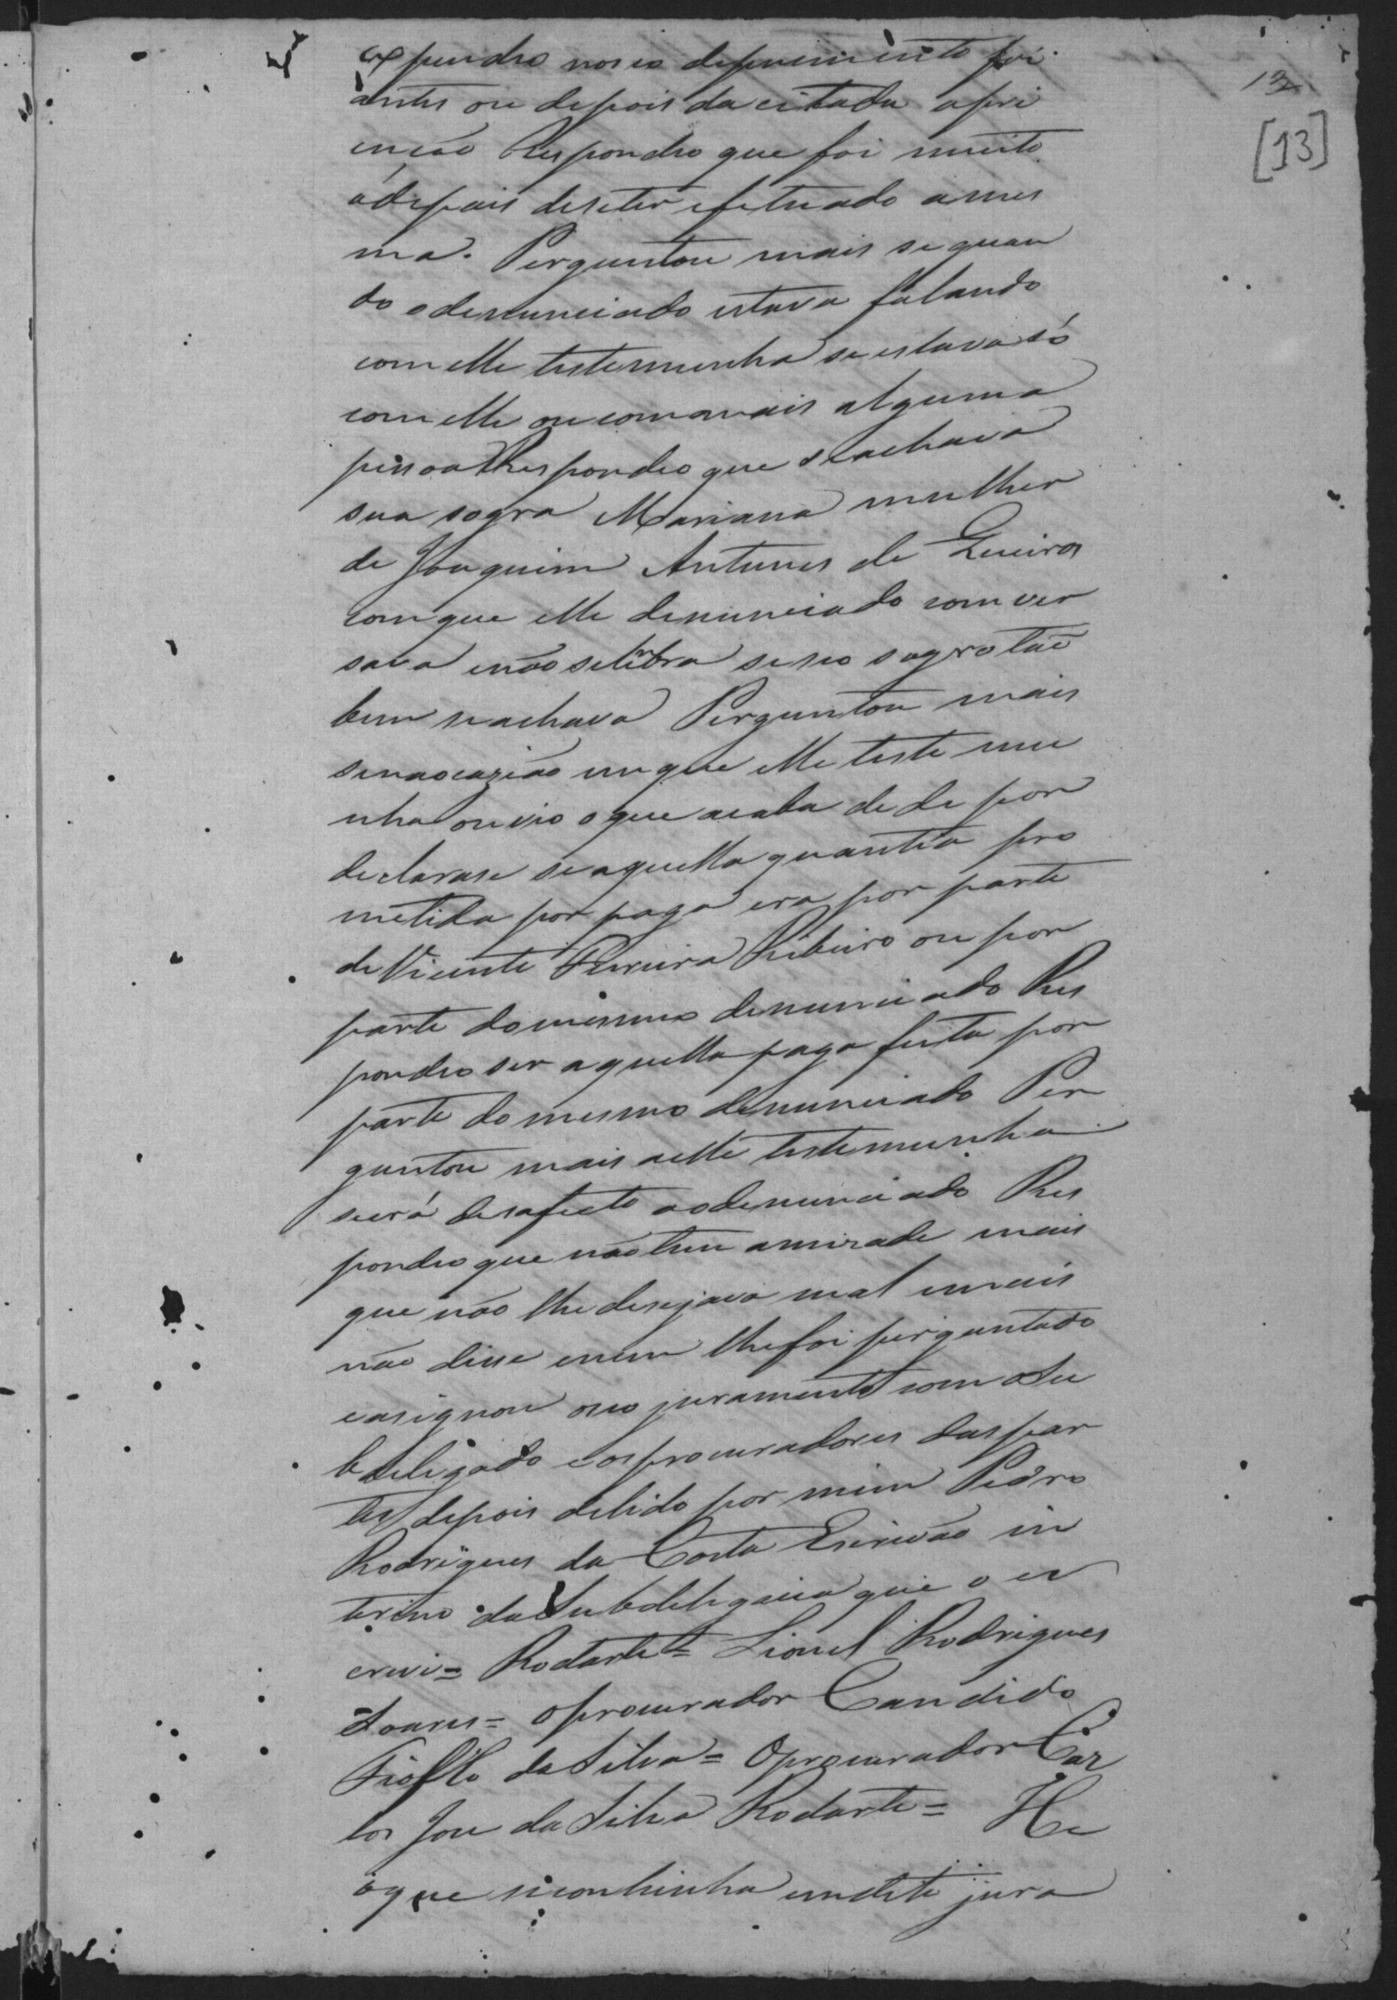 13
[13]
espendeo no seo depuimento foi
antes ou depois da citada apri
encão Respondeo que foi muito
ádepois deseter efetuado a mes
ma. Perguntou mais se quan
do o denunciado estava falando
com elle testemunha se estava só
com elle ou com mais alguma
pessoa Respondeo que se achava
sua sogra Mariana mulher
de Joaquim Antunes de Queiros
com que elle denunciado comver
sava e não se lembra se seo sogro tão
bem se achava Perguntou mais
se na ocazião em que elle teste mu
nha ouvio o que acaba de de por
declarase se aquella quantia pro
metida por paga era por parte
de Vicente Pereira Ribeiro ou por
parte do mesmo denunciado Res
pondeo ser aquella paga feita por
parte do mesmo denunciado Per
guntou mais a elle testemunha
se erá desafecto ao denunciado Res
pondeo que não tem amizade mais
que não lhe desejava mal e mais
não disse e nem lhe foi perguntado
e asignou o seo juramento com o Su
bdeligado e os procuradores das par
tes depois de lido por mim Pedro
Rodrigues da Costa Escrivão in
terino da Subdeligacia que o es
crevi= Rodarte= Lionel Rodrigues
Soares= O procurador Candido
Tiofllo da Silva= O procurador Car
los Jose da Silva Rodarte= He
o que se continha em dito jura